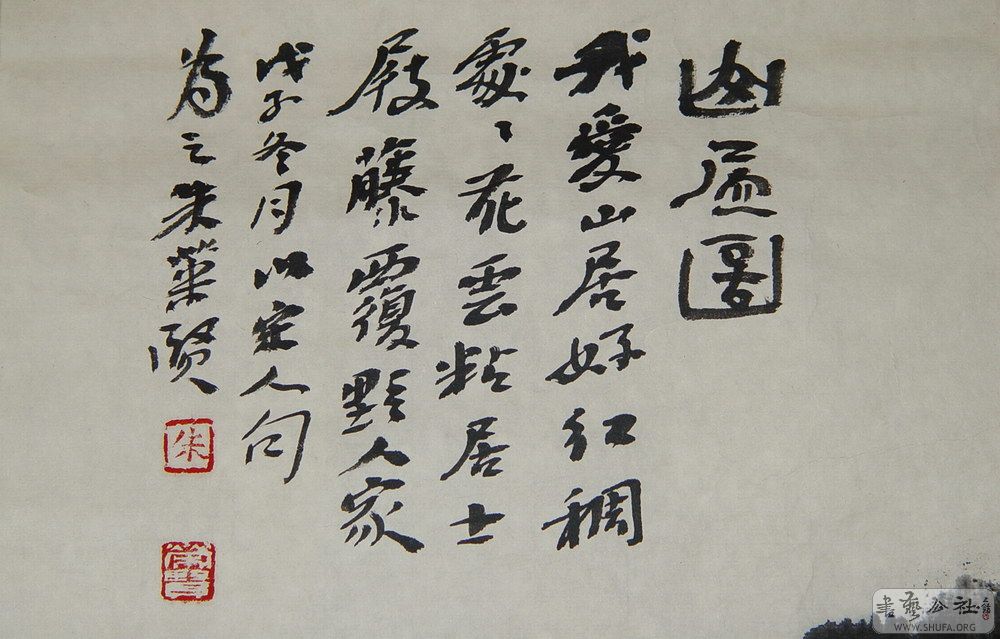 幽居圖
我愛山居好紅稠
處〻花雲粘居士
屐藤覆野人家
戊子冬月以宋人句
為之朱葉賢
朱
書藝公社
WWW.SHUFA.ORG